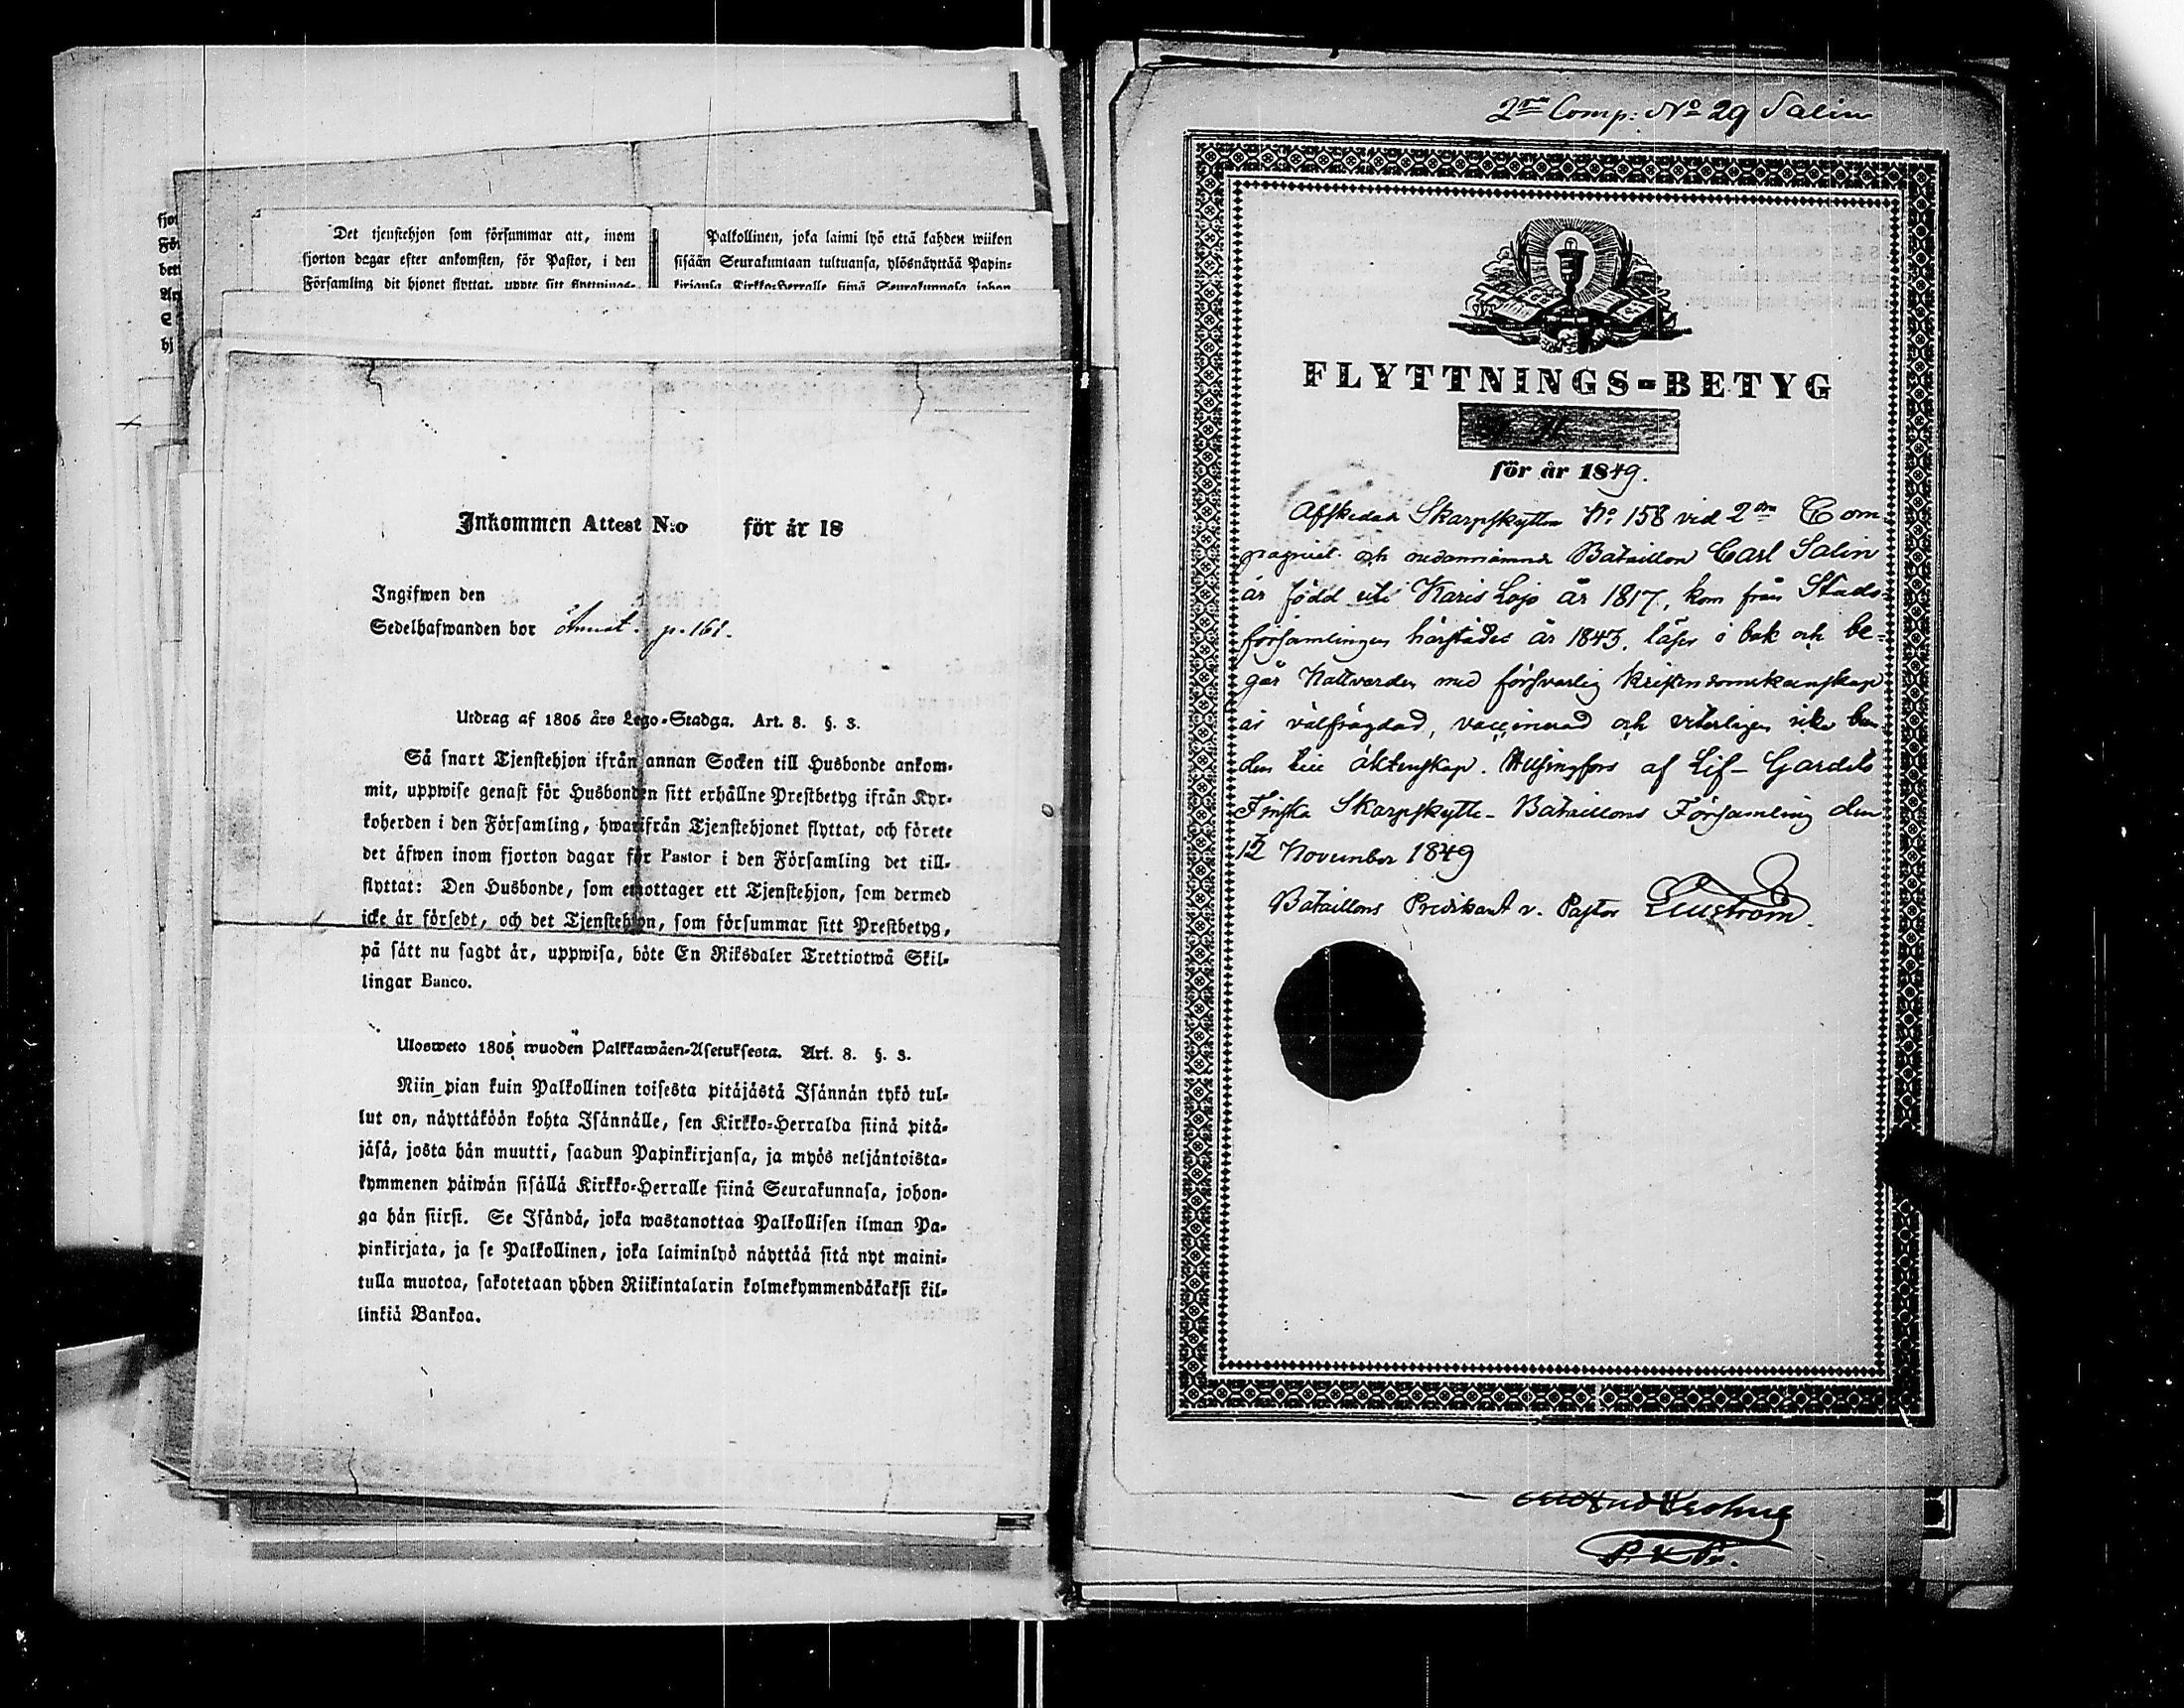 fjor
För
bet
An
S
hj
Det tjenstehjon som försummar att, inom
fjorton dagar efter ankomsten, för Pastor, i den
Församling dit hjonet flyttat, uppte sitt flyttnings-
Palkollinen, joka laimi lyö että kahden wiikon
sisään Seurakuntaan tultuansa, ylösnäyttää Papin-
kirjansa Kirkko-Herralle siinä Seurakunnasa johon
Inkommen Attest N:o för år 18
Ingifwen den
Sedelhafwanden bor annat. p. 161.
Utdrag af 1805 års Lego-Stadga. Art. 8. §. 3.
Så snart Tjenstehjon ifrån annan Socken till Husbonde ankom-
mit, uppwise genast för Husbonden sitt erhållne Prestbetyg ifrån Kyr-
koherden i den Församling, hwarifrån Tjenstehjonet flyttat, och förete
det äfwen inom fjorton dagar för Pastor i den Församling det till-
flyttat: Den Husbonde, som emottager ett Tjenstehjon, som dermed
icke är försedt, och det Tjenstehjon, som försummar sitt Prestbetyg,
på sätt nu sagdt är, uppwisa, böte En Riksdaler Trettiotwå Skil-
lingar Banco.
Ulosweto 1805 wuoden Palkkawäen-Asetuksesta. Art. 8. §. 3.
Niin pian kuin Palkollinen toisesta pitäjästä Isännän tykö tul-
lut on, näyttäköön kohta Isännälle, sen Kirkko-Herralda siinä pitä-
jäsä, josta hän muutti, saadun Papinkirjansa, ja myös neljäntoista-
kymmenen päiwän sisällä Kirkko-Herralle siinä Seurakunnasa, johon-
ga hän siirsi. Se Isändä, joka wastanottaa Palkollisen ilman Pa-
pinkirjata, ja se Palkollinen, joka laiminlyö näyttää sitä nyt maini-
tulla muotoa, sakotetaan yhden Riikintalarin kolmekymmendäkaksi kil-
linkiä Bankoa.
2dra Comp: No 29 Salin
FLYTTNINGS-BETYG
för år 1849.
Afskedade Skarpskytten No 158 vid 2dra Com-
pagniet och nedannämnda Bataillon Carl Salin
är född uti Karis Lojo år 1817, kom från Stads-
församlingen härstädes år 1843, läser i bok och be-
går Nattvarden med försvarlig kristendomskunskap
är välfrägdad, vaccinerad och veterligen icke bun-
den till äktenskap. Helsingfors af Lif-Gardets
Finska Skarpskytte-Bataillons Församling den
12 November 1849
Bataillons Predikant v. Pastor
P. v. Pr.